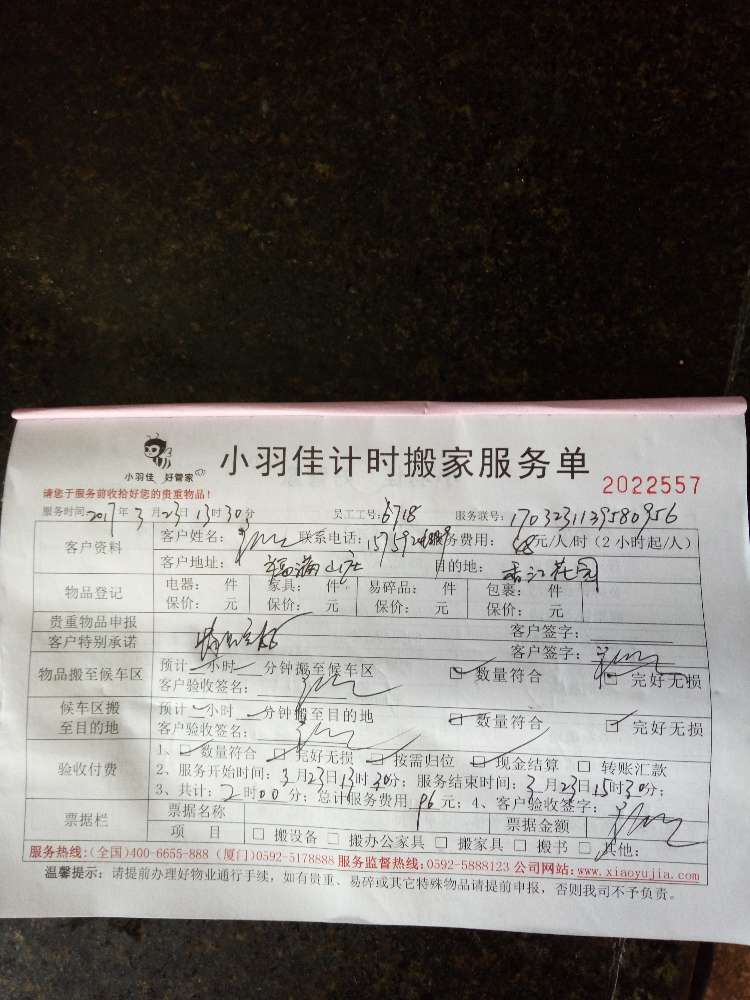 小羽佳 好管家
小羽佳计时搬家服务单
2022557
请您于服务前收拾好您的贵重物品!
服务时间 2017年 3月23日13时30分 员工工号: 6718 服务联号: 1703231139580956
客户资料 客户姓名: 联系电话: 服务费用: 元/人/时 (2小时起/人)
客户地址: 福满山庄 目的地: 香江花园
物品登记 电器: 件 家具: 件 易碎品: 件 包裹: 件
保价: 元 保价: 元 保价: 元 保价: 元
贵重物品申报 客户签字:
客户特别承诺 客户签字:
物品搬至候车区 预计 小时 分钟搬至候车区 数量符合 完好无损
客户验收签名:
候车区搬至目的地 预计 小时 分钟搬至目的地 数量符合 完好无损
客户验收签名:
验收付费 1、 数量符合 完好无损 按需归位 现金结算 转账汇款
2、服务开始时间: 3月23日13时30分; 服务结束时间: 3月23日15时30分;
3、共计: 2时00分; 总计服务费用 96元; 4、客户验收签字:
票据栏 票据名称 票据金额
项 目 搬设备 搬办公家具 搬家具 搬书 其他:
服务热线:(全国)400-6655-888 (厦门)0592-5178888 服务监督热线:0592-5888123 公司网站:www.xiaoyujia.com
温馨提示: 请提前办理好物业通行手续, 如有贵重、易碎或其它特殊物品请提前申报, 否则我司不予负责。